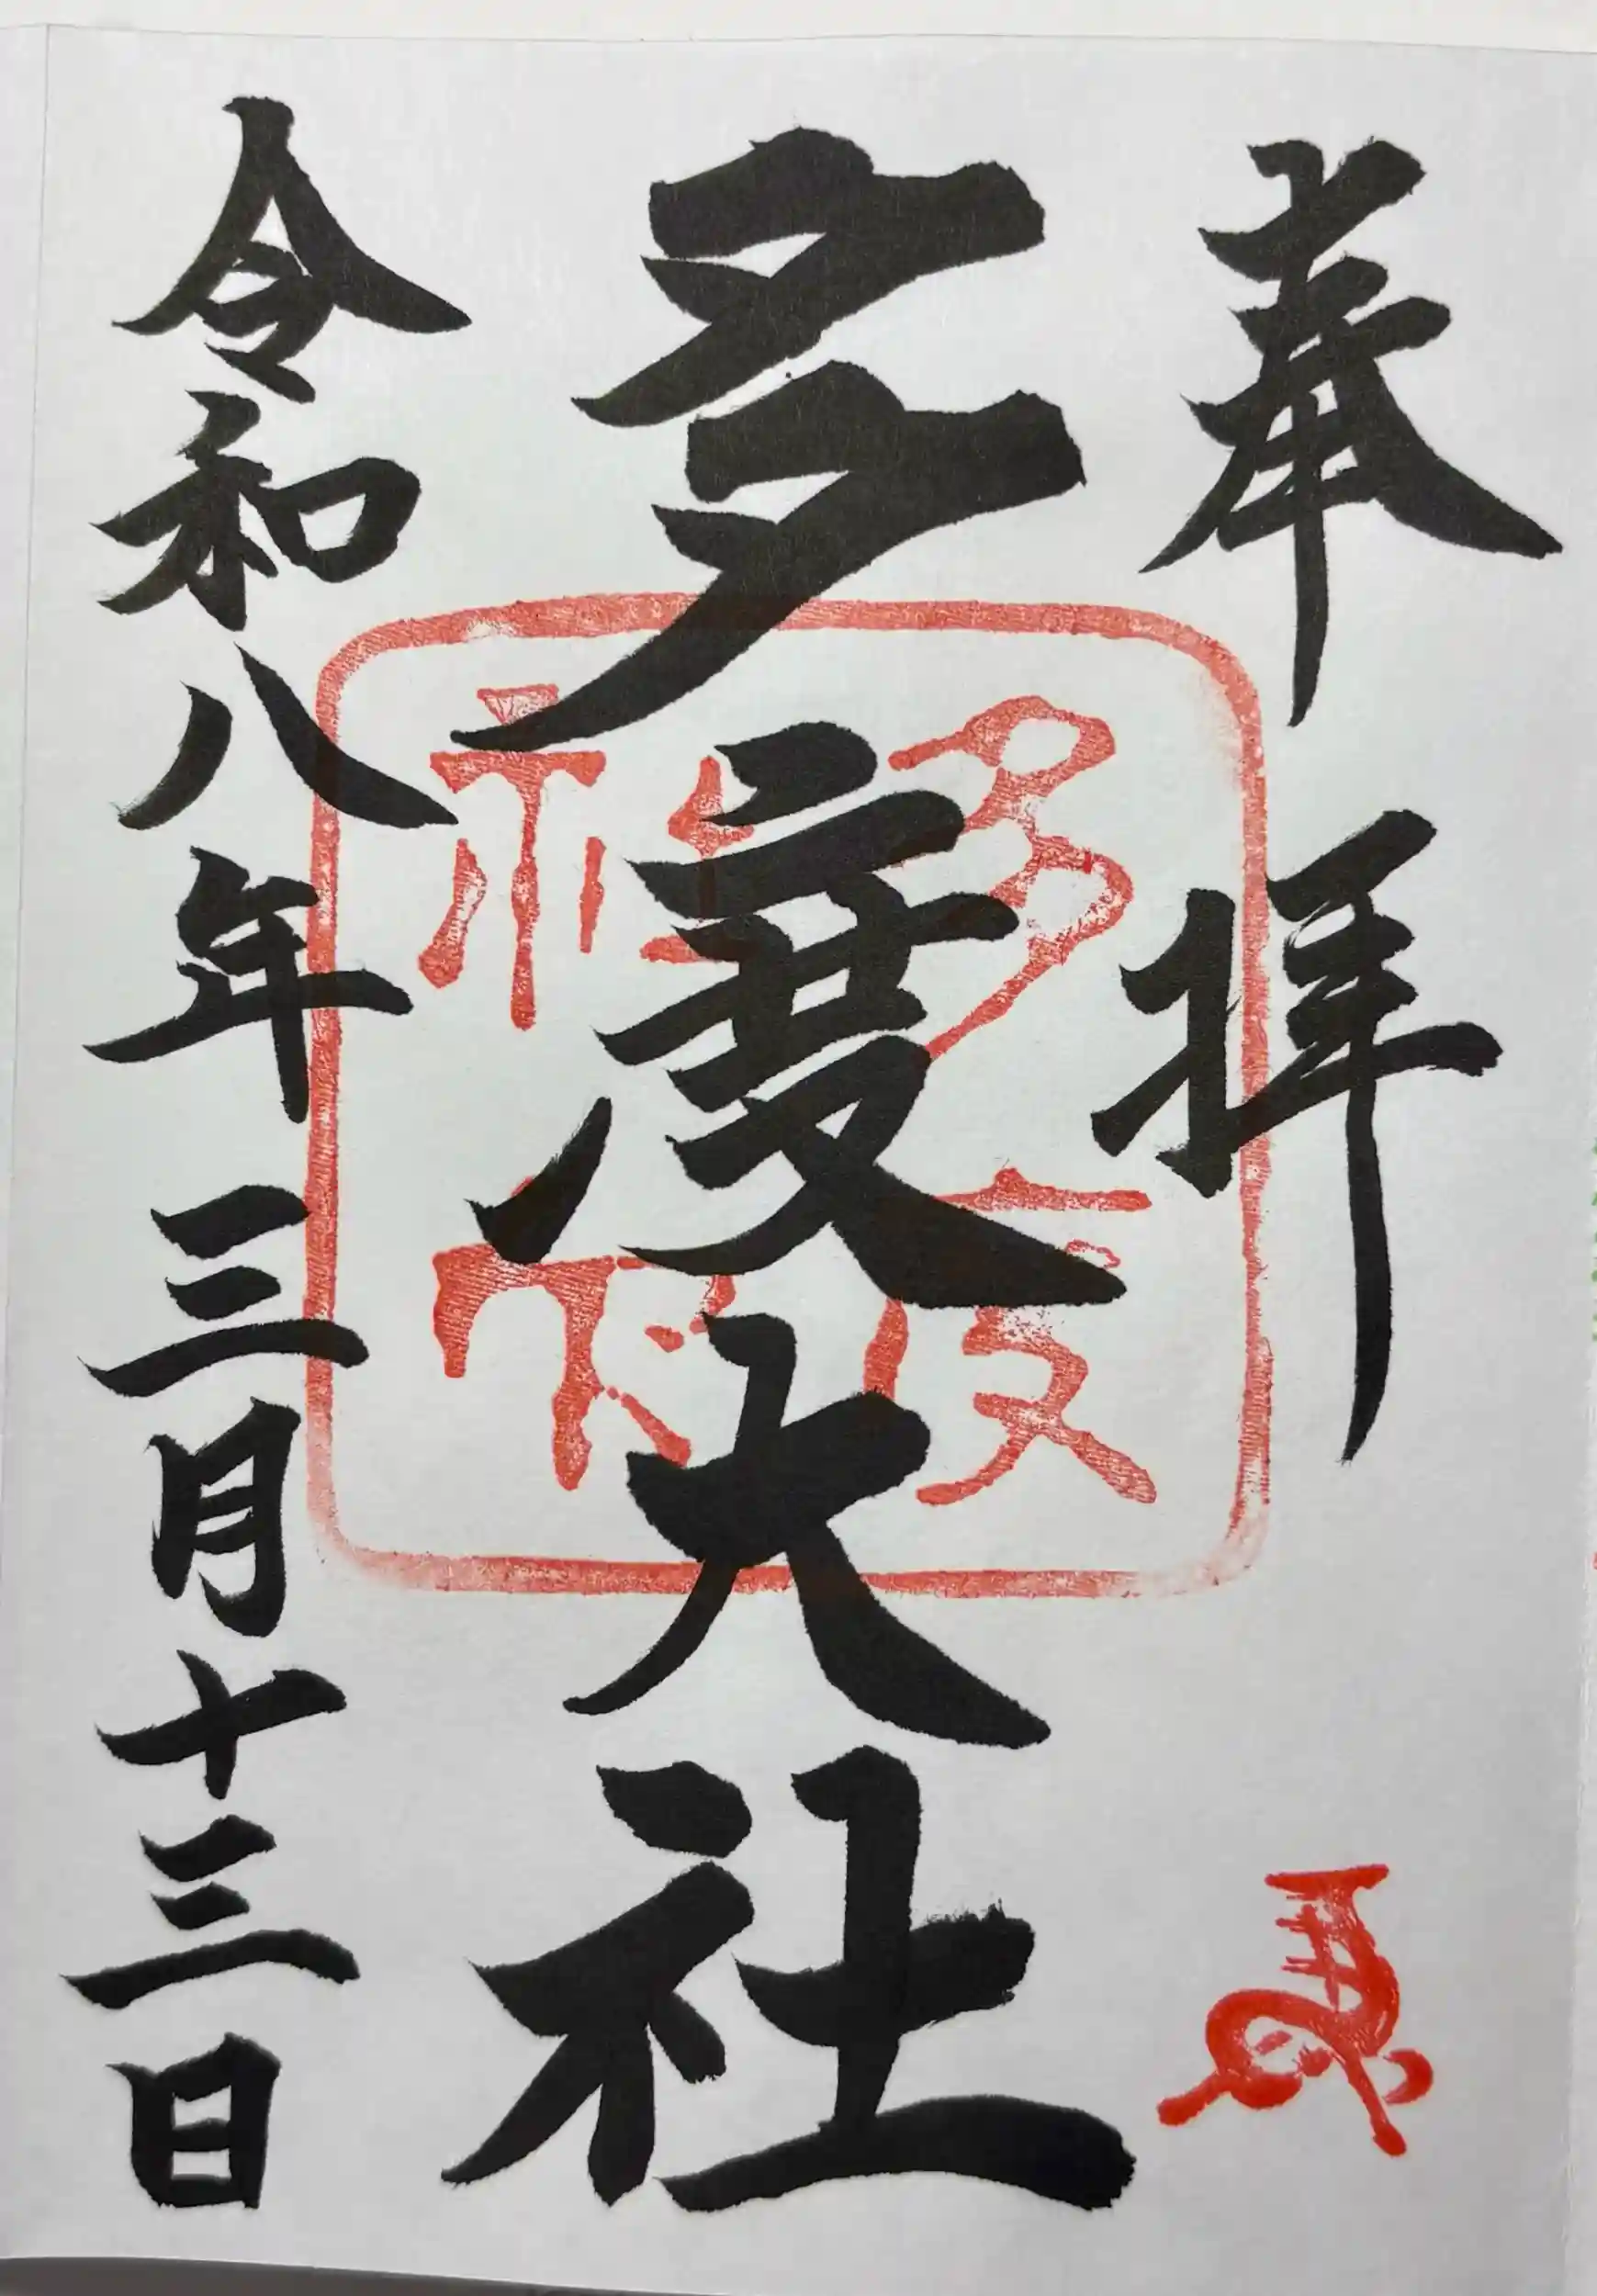 奉拝
多度大社
多度神社
令和八年三月十三日